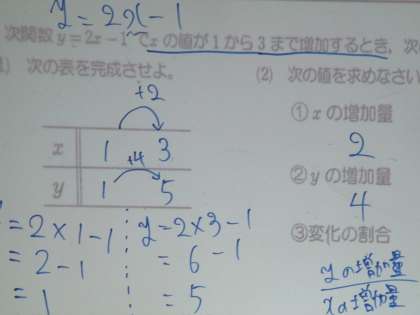 y = 2x - 1
次関数 y = 2x - 1 で x の値が1から3まで増加するとき, 次
1) 次の表を完成させよ。
(2) 次の値を求めなさい
+2
① x の増加量
x 1 3
2
+4
② y の増加量
y 1 5
4
③変化の割合
= 2×1-1
= 2-1
= 1
y = 2×3-1
= 6-1
= 5
yの増加量
xの増加量